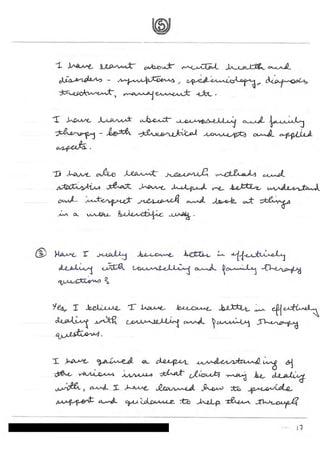 I have learnt about mental health and
disorders - symptoms, epidemiology, diagnosis
treatment, management etc.
I have learnt about counselling and family
therapy - both theoretical concepts and applied
aspects.
I have also learnt research methods and
statistics that have helped me better understand
and interpret research and look at things
in a more scientific way.
⑤ Have I really become better in effectively
dealing with counselling and family therapy
questions?
Yes, I believe I have become better in effectively
dealing with counselling and family therapy
questions.
I have gained a deeper understanding of
the various issues that clients may be dealing
with, and I have learned how to provide
support and guidance to help them through
17